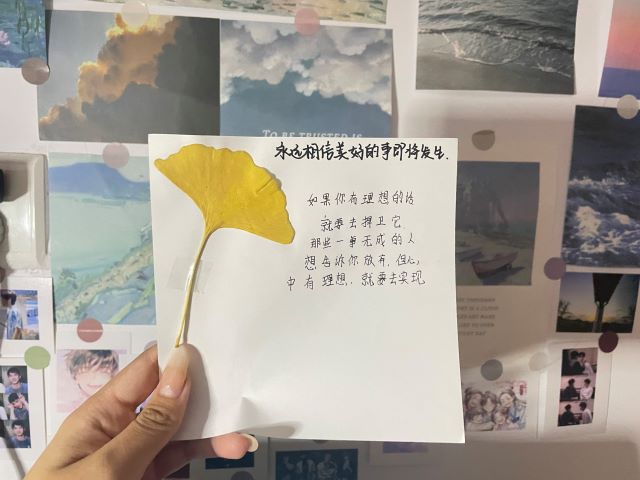 TO BE TRUSTED IS
永远相信美好的事即将发生.
如果你有理想的话
就要去捍卫它.
那些一事无成的人
想告诉你放弃. 但心
中有理想. 就要去实现